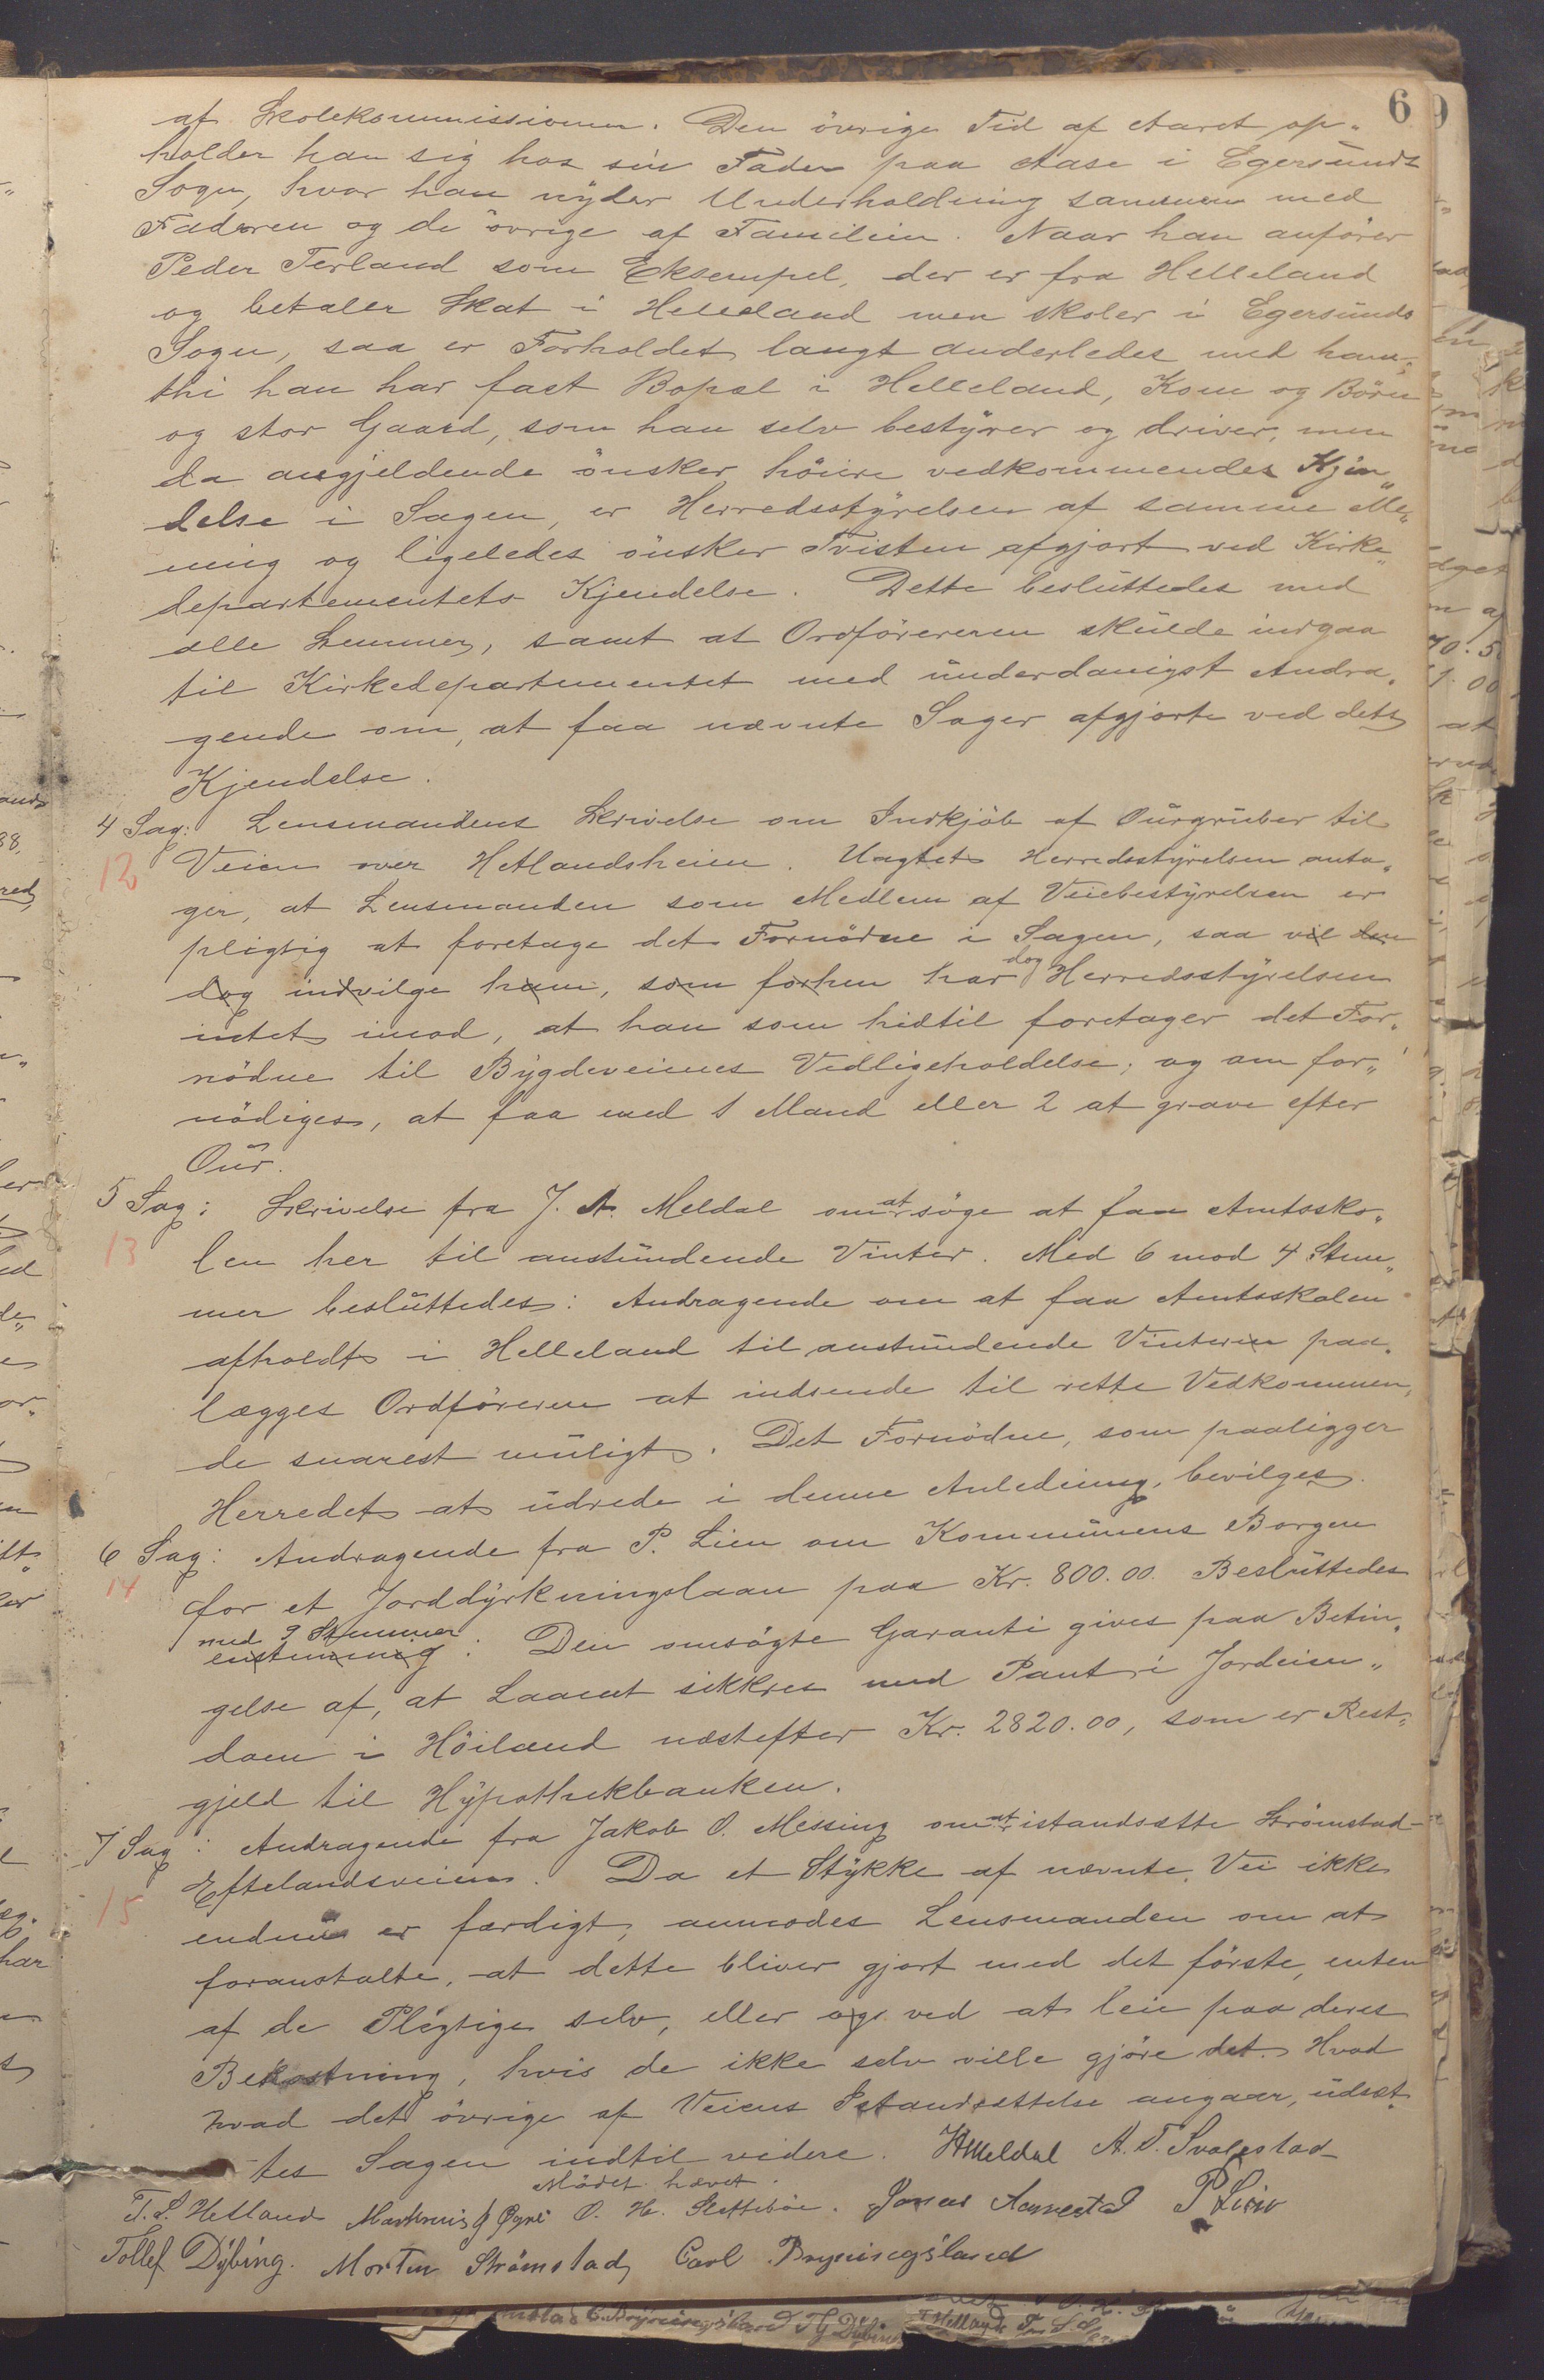 6
af Skolekommissionen. Den övrige Tid af Aaret op-
holder han sig hos sin Fader paa Aase i Egersunds
Sogn, hvor han nyder Underholdning sammen med
Faderen og de övrige af Familien. Naar han anfører
Peder Terland som Eksempel, der er fra Helleland
og betaler Skat i Helleland men skoler i Egersunds
Sogn, saa er Forholdet langt anderledes med ham;
thi han har fast Bopæl i Helleland, Kone og Börn
og stor Gaard, som han selv bestyrer og driver, men
da angjeldende önsker höiere vedkommendes Kjen-
delse i Sagen, er Herredsstyrelsen af samme Me-
ning og ligeledes önsker Tvisten afgjort ved Kirke-
departementets Kjendelse. Dette besluttedes med
alle Stemmer, samt at Ordföreren skulde indgaa
til Kirkedepartementet med underdanigst Andra-
gende om, at faa nævnte Sager afgjorte ved dets
Kjendelse.
4 Sag: Lensmandens Skrivelse om Indkjöb af Ourgruber til
12 Veien over Hetlandsheien. Uagtet Herredsstyrelsen anta-
ger, at Lensmanden som Medlem af Veiebestyrelsen er
pligtig at foretage det Fornödne i Sagen, saa vil den
dog indvilge ham, som forhen har dog Herredsstyrelsen
intet imod, at han som hidtil foretager det For-
nödne til Bygdeveienes Vedligeholdelse; og om for-
nödiges, at faa med 1 Mand eller 2 at grave efter
Our.
5 Sag: Skrivelse fra J. A. Meldal om at søge at faa Amtssko-
13 len her til anstundende Vinter. Med 6 mod 4 Stem-
mer besluttedes: Andragende om at faa Amtsskolen
afholdt i Helleland til anstundende Vinteren paa-
lægges Ordföreren at indsende til rette Vedkommen-
de snarest muligt. Det Fornödne, som paaligger
Herredet at udrede i denne Anledning, bevilges.
6 Sag: Andragende fra P. Lien om Kommunens Borgen
14 for et Jorddyrkningslaan paa Kr. 800.00. Besluttedes
med 9 Stemmer
enstemmig: Den omsögte Garanti gives paa Betin-
gelse af, at Laanet sikkres med Pant i Jordeien-
dom i Höiland næstefter Kr. 2820.00, som er Rest-
gjeld til Hypothekbanken.
7 Sag: Andragende fra Jakob O. Messing om at istandsætte Strömstad-
15 Eftelandsveien. Da et Stykke af nævnte Vei ikke
endnu er færdigt, anmodes Lensmanden om at
foranstalte, at dette bliver gjort med det förste, enten
af de Pligtige selv, eller ogs ved at leie paa deres
Bekostning, hvis de ikke selv ville gjöre det. Hvad
hvad det övrige af Veiens Istandsættelse angaar, udsæt-
tes Sagen indtil videre. JAMeldal A. T. Svalestad
Mödet hævet.
T. S. Hetland O. H. Slettebøe. Jonas Aarrestad P Lien
Tollef Dybing. Morten Strömstad, Carl Bryningsland